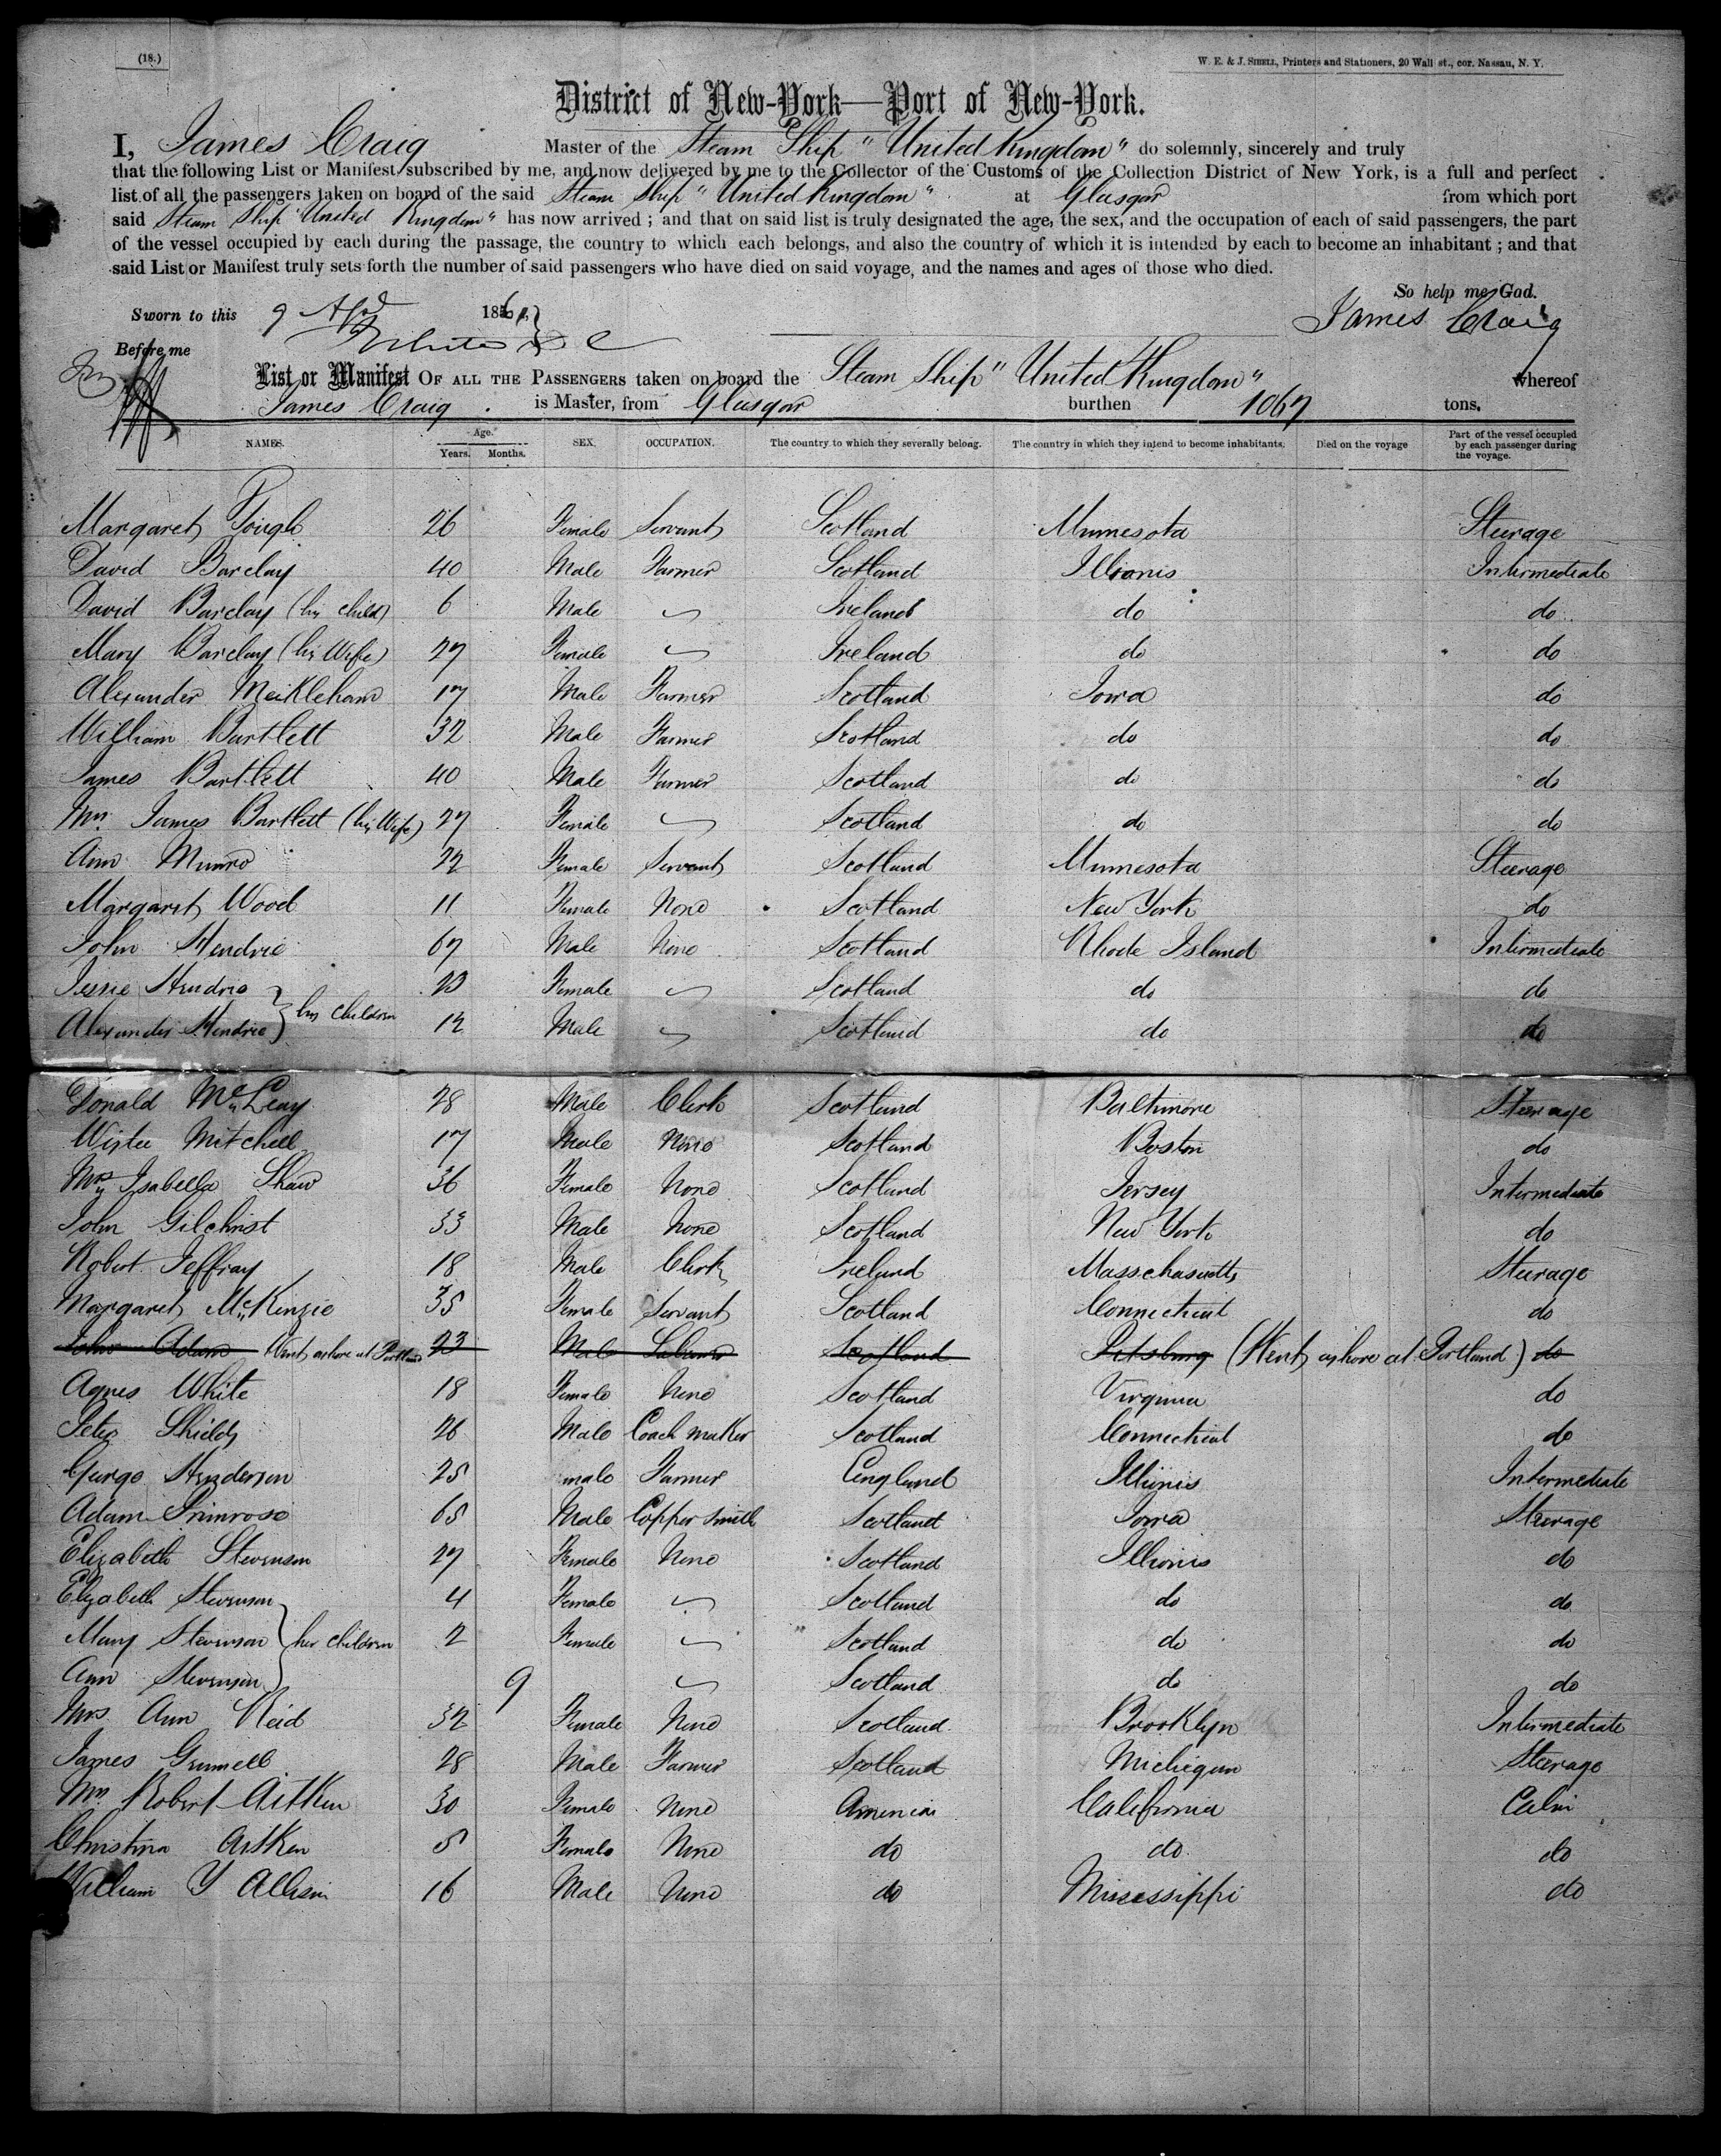 (18.)
W. E. & J. SIBELL, Printers and Stationers, 20 Wall st., cor. Nassau, N. Y.
District of New-York—Port of New-York.
I, James Craig Master of the Steam Ship "United Kingdom" do solemnly, sincerely and truly
that the following List or Manifest subscribed by me, and now delivered by me to the Collector of the Customs of the Collection District of New York, is a full and perfect
list of all the passengers taken on board of the said Steam Ship "United Kingdom" at Glasgow from which port
said Steam Ship "United Kingdom" has now arrived ; and that on said list is truly designated the age, the sex, and the occupation of each of said passengers, the part
of the vessel occupied by each during the passage, the country to which each belongs, and also the country of which it is intended by each to become an inhabitant ; and that
said List or Manifest truly sets forth the number of said passengers who have died on said voyage, and the names and ages of those who died.
So help me God.
Sworn to this 9 Apl 1861, James Craig
Before me
List or Manifest OF ALL THE PASSENGERS taken on board the Steam Ship "United Kingdom" whereof
James Craig is Master, from Glasgow burthen 1067 tons.
NAMES. Age. Years. Months. SEX. OCCUPATION. The country to which they severally belong. The country in which they intend to become inhabitants. Died on the voyage Part of the vessel occupied by each passenger during the voyage.
Margaret Tough 26 Female Servant Scotland Minnesota Steerage
David Barclay 40 Male Farmer Scotland Illionis Intermediate
David Barclay (his child) 6 Male Ireland do do
Mary Barclay (his Wife) 27 Female Ireland do do
Alexander Meikleham 17 Male Farmer Scotland Iowa do
William Bartlett 32 Male Farmer Scotland do do
James Bartlett 40 Male Farmer Scotland do do
Mrs. James Bartlett (his Wife) 27 Female Scotland do do
Ann Munro 22 Female Servant Scotland Minnesota Steerage
Margaret Wood 11 Female None Scotland New York do
John Hendrie 67 Male None Scotland Rhode Island Intermediate
Jessie Hendrie 23 Female Scotland do do
his children
Alexander Hendrie 12 Male Scotland do do
Donald McLeay 28 Male Clerk Scotland Baltimore Steerage
Mitchell 17 Male None Scotland Boston do
Mrs Isabella Shaw 36 Female None Scotland Jersey Intermediate
John Gilchrist 33 Male None Scotland New York do
Robert Jeffray 18 Male Clerk Ireland Massachusetts Steerage
Margaret McKenzie 35 Female Servant Scotland Connecticut do
John Adam (Went ashore at Portland 23 Male Labourer Scotland Pitsburg (Went ashore at Portland) do
Agnes White 18 Female None Scotland Virginia do
Peter Shields 26 Male Coach maker Scotland Connecticut do
George Henderson 25 male Farmer England Illionis Intermediate
Adam Primrose 65 Male Copper Smith Scotland Iowa Steerage
Elizabeth Stevenson 27 Female None Scotland Illionis do
Elizabeth Stevenson 4 Female Scotland do do
Mary Stevenson her children 2 Female Scotland do do
Ann Stevenson 9 Scotland do do
Mrs Ann Reid 32 Female None Scotland Brooklyn Intermediate
James Gemmell 28 Male Farmer Scotland Michigan Steerage
Mrs Robert Aitken 30 Female None America California Cabin
Christina Aitken 5 Female None do do do
William Y Allison 16 Male None do Mississippi do